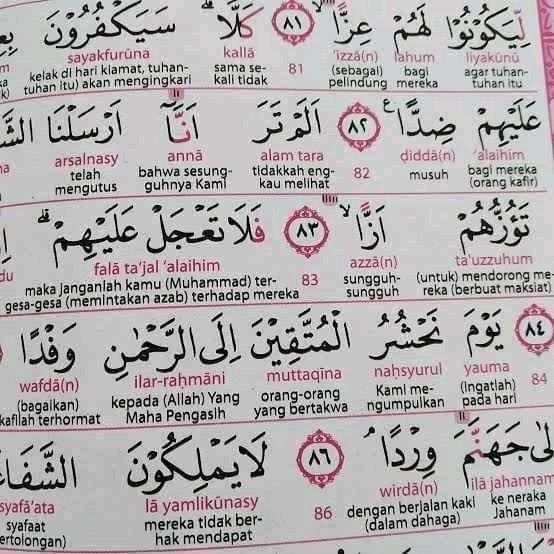 لِّيَكُوْنُوْا لَهُمْ عِزًّا ۙ ٨١ كَلَّا ۗ سَيَكْفُرُوْنَ
sayakfurūna kallā 'izzā(n) lahum liyakūnū
kelak di hari kiamat, tuhan- sama se- 81 (sebagai) bagi agar tuhan-
tuhan itu) akan mengingkari kali tidak pelindung mereka tuhan itu
عَلَيْهِمْ ضِدًّا ࣖ ٨٢ اَلَمْ تَرَ اَنَّآ اَرْسَلْنَا
arsalnasy annā alam tara ḍiddā(n) 'alaihim
telah bahwa sesung- tidakkah eng- 82 musuh bagi mereka
mengutus guhnya Kami kau melihat (orang kafir)
تَؤُزُّهُمْ اَزًّا ۙ ٨٣ فَلَا تَعْجَلْ عَلَيْهِمْ ۗ
falā ta'jal 'alaihim azzā(n) ta'uzzuhum
maka janganlah kamu (Muhammad) ter- 83 sungguh- (untuk) mendorong me-
gesa-gesa (memintakan azab) terhadap mereka sungguh reka (berbuat maksiat)
٨٤ يَوْمَ نَحْشُرُ الْمُتَّقِيْنَ اِلَى الرَّحْمٰنِ وَفْدًا
wafdā(n) ilar-raḥmāni muttaqīna naḥsyurul yauma 84
(bagaikan) kepada (Allah) Yang orang-orang Kami me- (Ingatlah)
kafilah terhormat Maha Pengasih yang bertakwa ngumpulkan pada hari
اِلٰى جَهَنَّمَ وِرْدًا ۘ ٨٦ لَا يَمْلِكُوْنَ
syafā'ata lā yamlikūnasy 86 wirdā(n) ilā jahannama
syafaat mereka tidak ber- dengan berjalan kaki ke neraka
hak mendapat (dalam dahaga) Jahanam